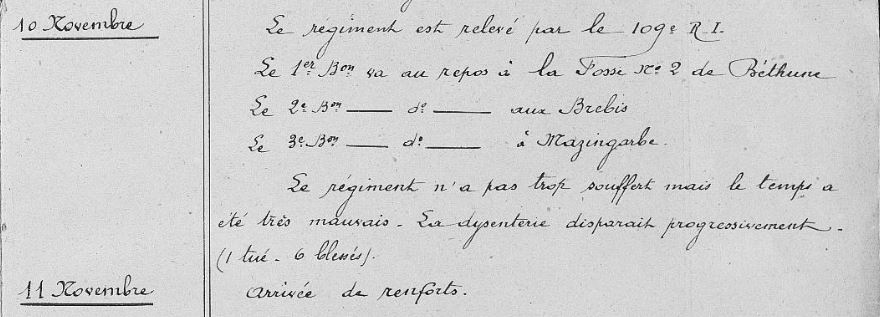 10 Novembre
Le régiment est relevé par le 109e R.I.
Le 1er Bon va au repos à la Fosse No 2 de Béthune
Le 2e Bon —— do —— aux Brebis
Le 3e Bon —— do —— à Mazingarbe.
Le régiment n'a pas trop souffert mais le temps a
été très mauvais - La dysenterie disparait progressivement -
(1 tué - 6 blessés).
11 Novembre
Arrivée de renforts.